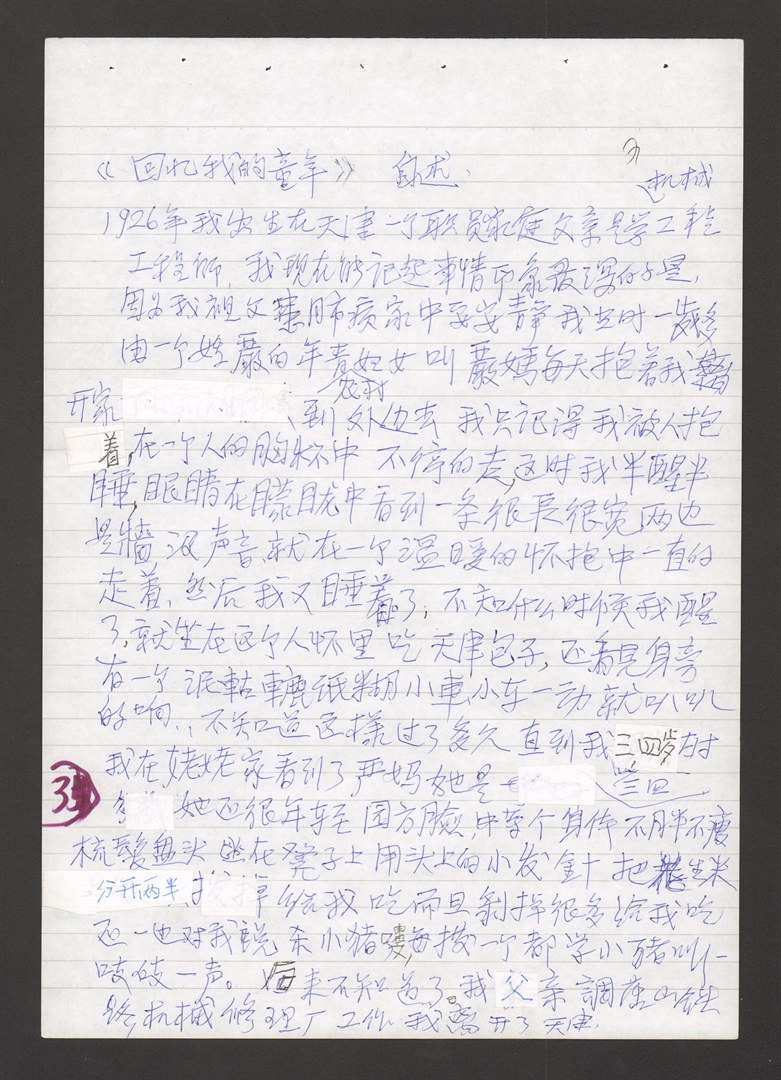 《回忆我的童年》 自述.
机械
1926年我出生在天津一个职员家庭父亲是学工程
工程师,我现在能记起事情印象最深的是,
因为我祖父患肺病家中要安静我当时一岁多
由一个姓嚴的年青妇女叫嚴媽每天抱着我離
开家 农村 到外边去 我只记得我被人抱
着,在一个人的胸怀中 不停的走,这时我半醒半
睡,眼睛在朦胧中看到一条很長很宽两边
是牆没声音就在一个温暖的怀抱中一直的
走着,然后我又睡着了,不知什么时候我醒
了,就坐在这个人怀里吃天津包子,还看見身旁
有一个泥轱轆纸糊小車,小车一动就叭叭
的响,不知道这样过了多久直到我三四岁时
我在姥姥家看到了严妈她是 兰四
35
她还很年轻 园方脸,中等个身体 不胖不瘦
梳髮盘头 坐在凳子上用头上的小发針把 生米
分开两半, 掉给我吃而且剥掉很多给我吃
还一边对我說杀小猪嘍,每拨一个都学小猪叫
吱吱一声。后来不知道了。我父亲調唐山鉄
路机械修理厂工作我离开了天津.